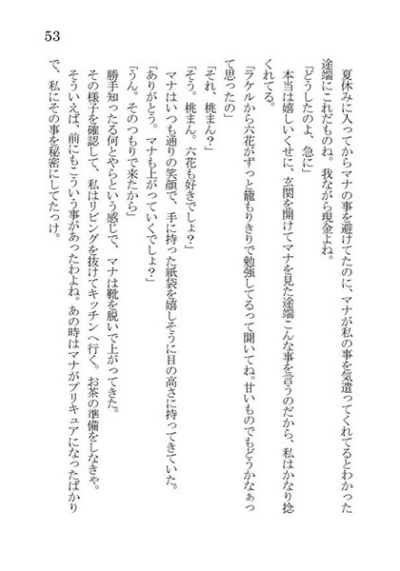 53
夏休みに入ってからマナの事を避けてたのに、マナが私の事を気遣ってくれてるとわかった
途端にこれだものね。我ながら現金よね。
「どうしたのよ、急に」
本当は嬉しいくせに、玄関を開けてマナを見た途端こんな事を言うのだから、私はかなり捻
くれてる。
「ラケルから六花がずっと籠もりきりで勉強してるって聞いてね。甘いものでもどうかなぁっ
て思ったの」
「それ、桃まん？」
「そう、桃まん。六花も好きでしょ？」
マナはいつも通りの笑顔で、手に持った紙袋を嬉しそうに目の高さに持ってきていた。
「ありがとう。マナも上がっていくでしょ？」
「うん。そのつもりで来たから」
勝手知ったる何とやらという感じで、マナは靴を脱いで上がってきた。
その様子を確認して、私はリビングを抜けてキッチンへ行く。お茶の準備をしなきゃ。
そういえば、前にもこういう事があったわよね。あの時はマナがプリキュアになったばかり
で、私にその事を秘密にしてたっけ。